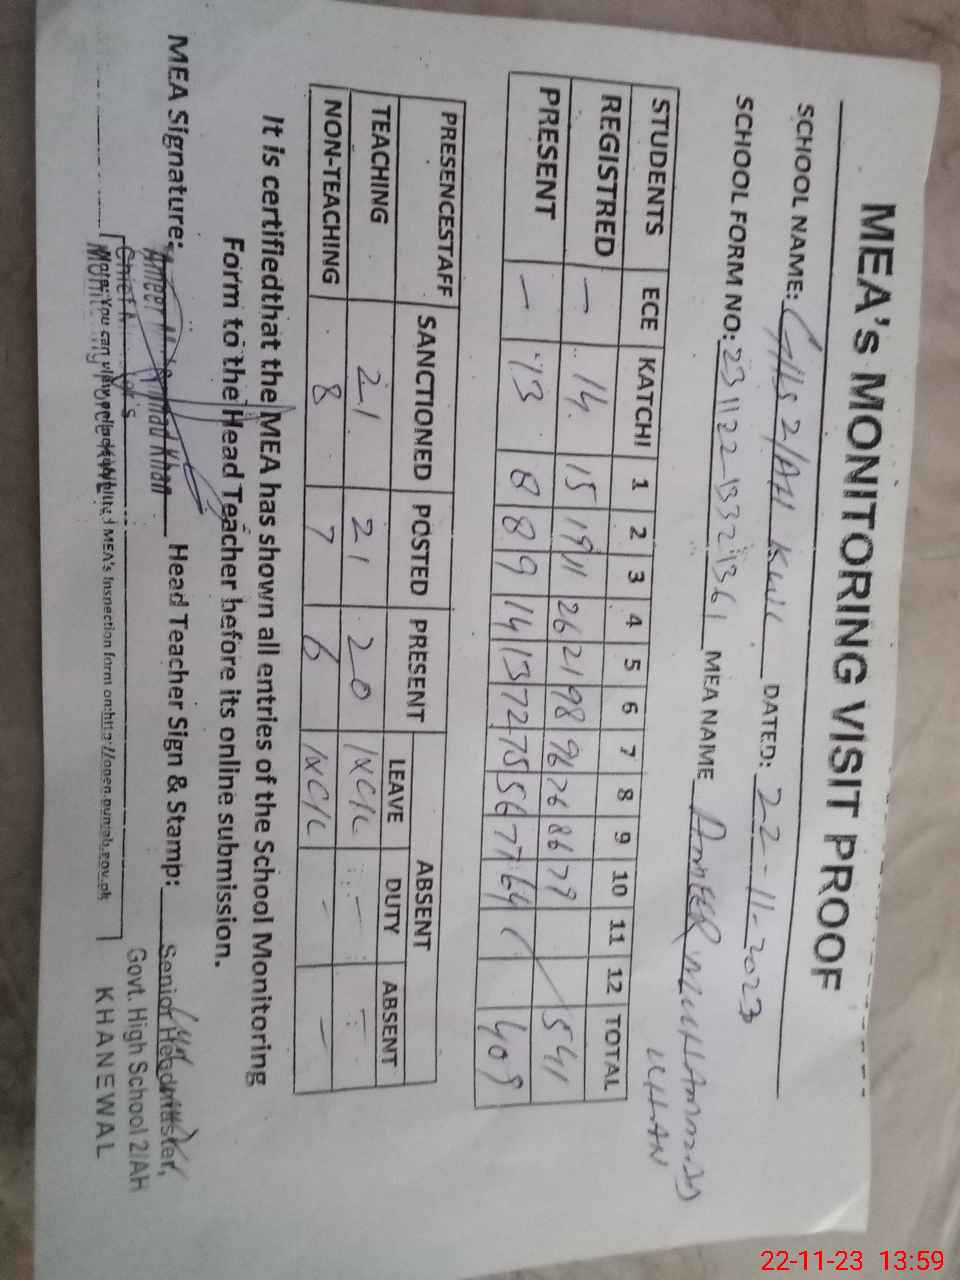 MEA's MONITORING VISIT PROOF
SCHOOL NAME: GHS 2/AH KWL DATED: 22-11-2023
SCHOOL FORM NO: 231122-13321361 MEA NAME AMEER MUHAMMAD
KHAN
STUDENTS ECE KATCHI 1 2 3 4 5 6 7 8 9 10 11 12 TOTAL
REGISTRED - 14 15 19 11 26 21 98 96 76 86 79 / 541
PRESENT - 13 8 8 9 14 13 72 75 56 77 64 / 409
PRESENCESTAFF SANCTIONED POSTED PRESENT ABSENT
LEAVE DUTY ABSENT
TEACHING 21 21 20 1xC/L - -
NON-TEACHING 8 7 6 1xC/L - -
It is certifiedthat the MEA has shown all entries of the School Monitoring
Form to the Head Teacher before its online submission.
MEA Signature: Head Teacher Sign & Stamp:
Ameer Muhammad Khan
Senior Headmaster,
Govt. High School 2/AH
KHANEWAL
Note: You can view MEA's Inspection form on:http://open.punjab.gov.pk
22-11-23 13:59